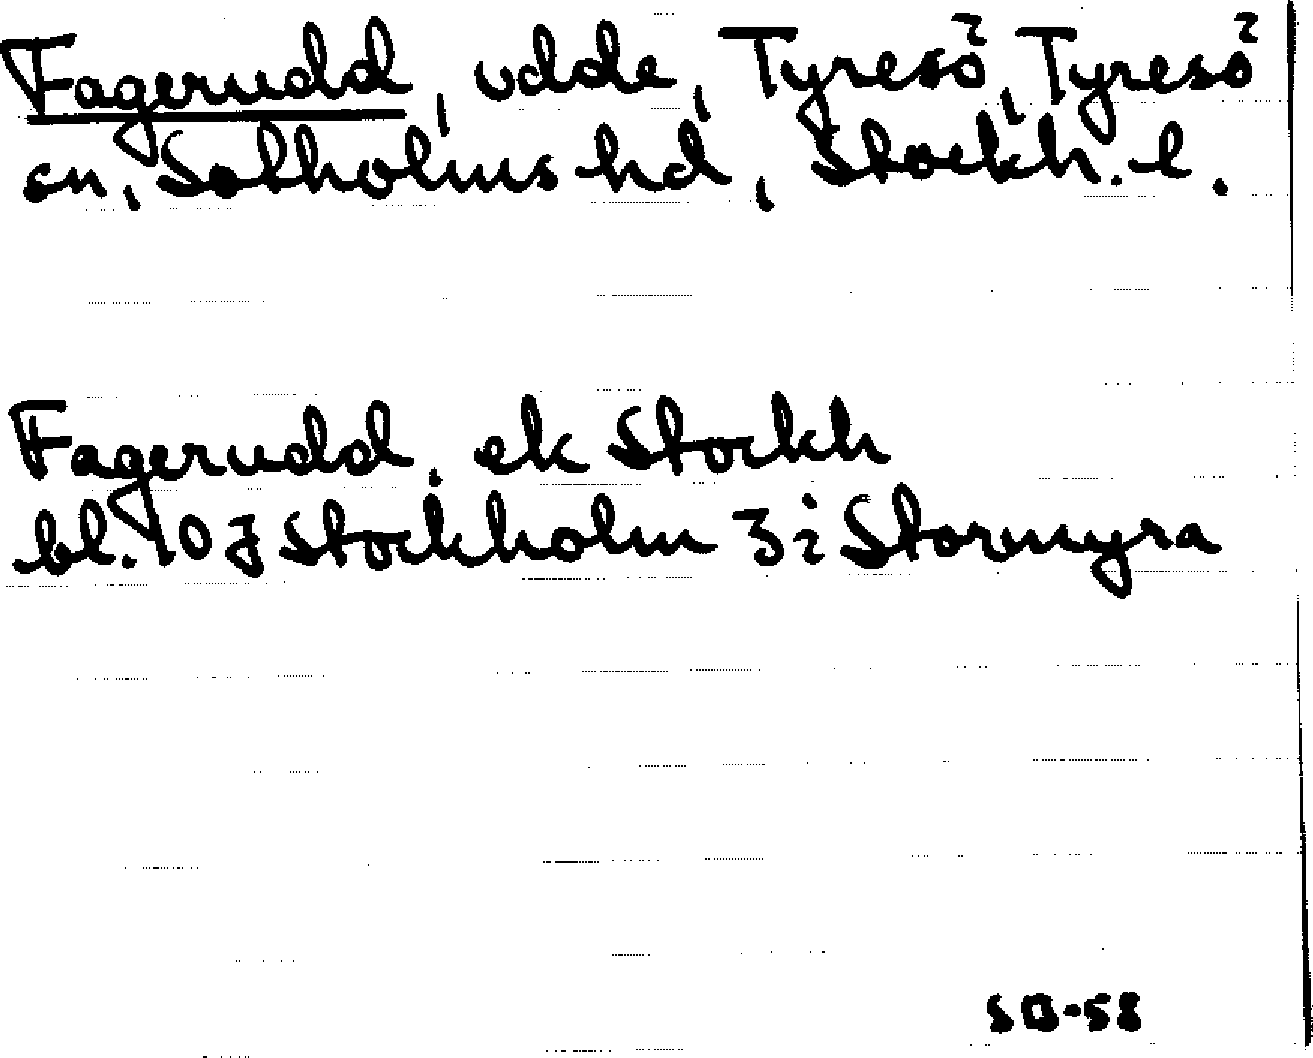 Fagerudd, udde, Tyresö, Tyresö
sn, Solholms hd, Stockh. l.
Fagerudd, ek Stockh
bl. 10 J Stockholm 3 i Stormyra
SB-58